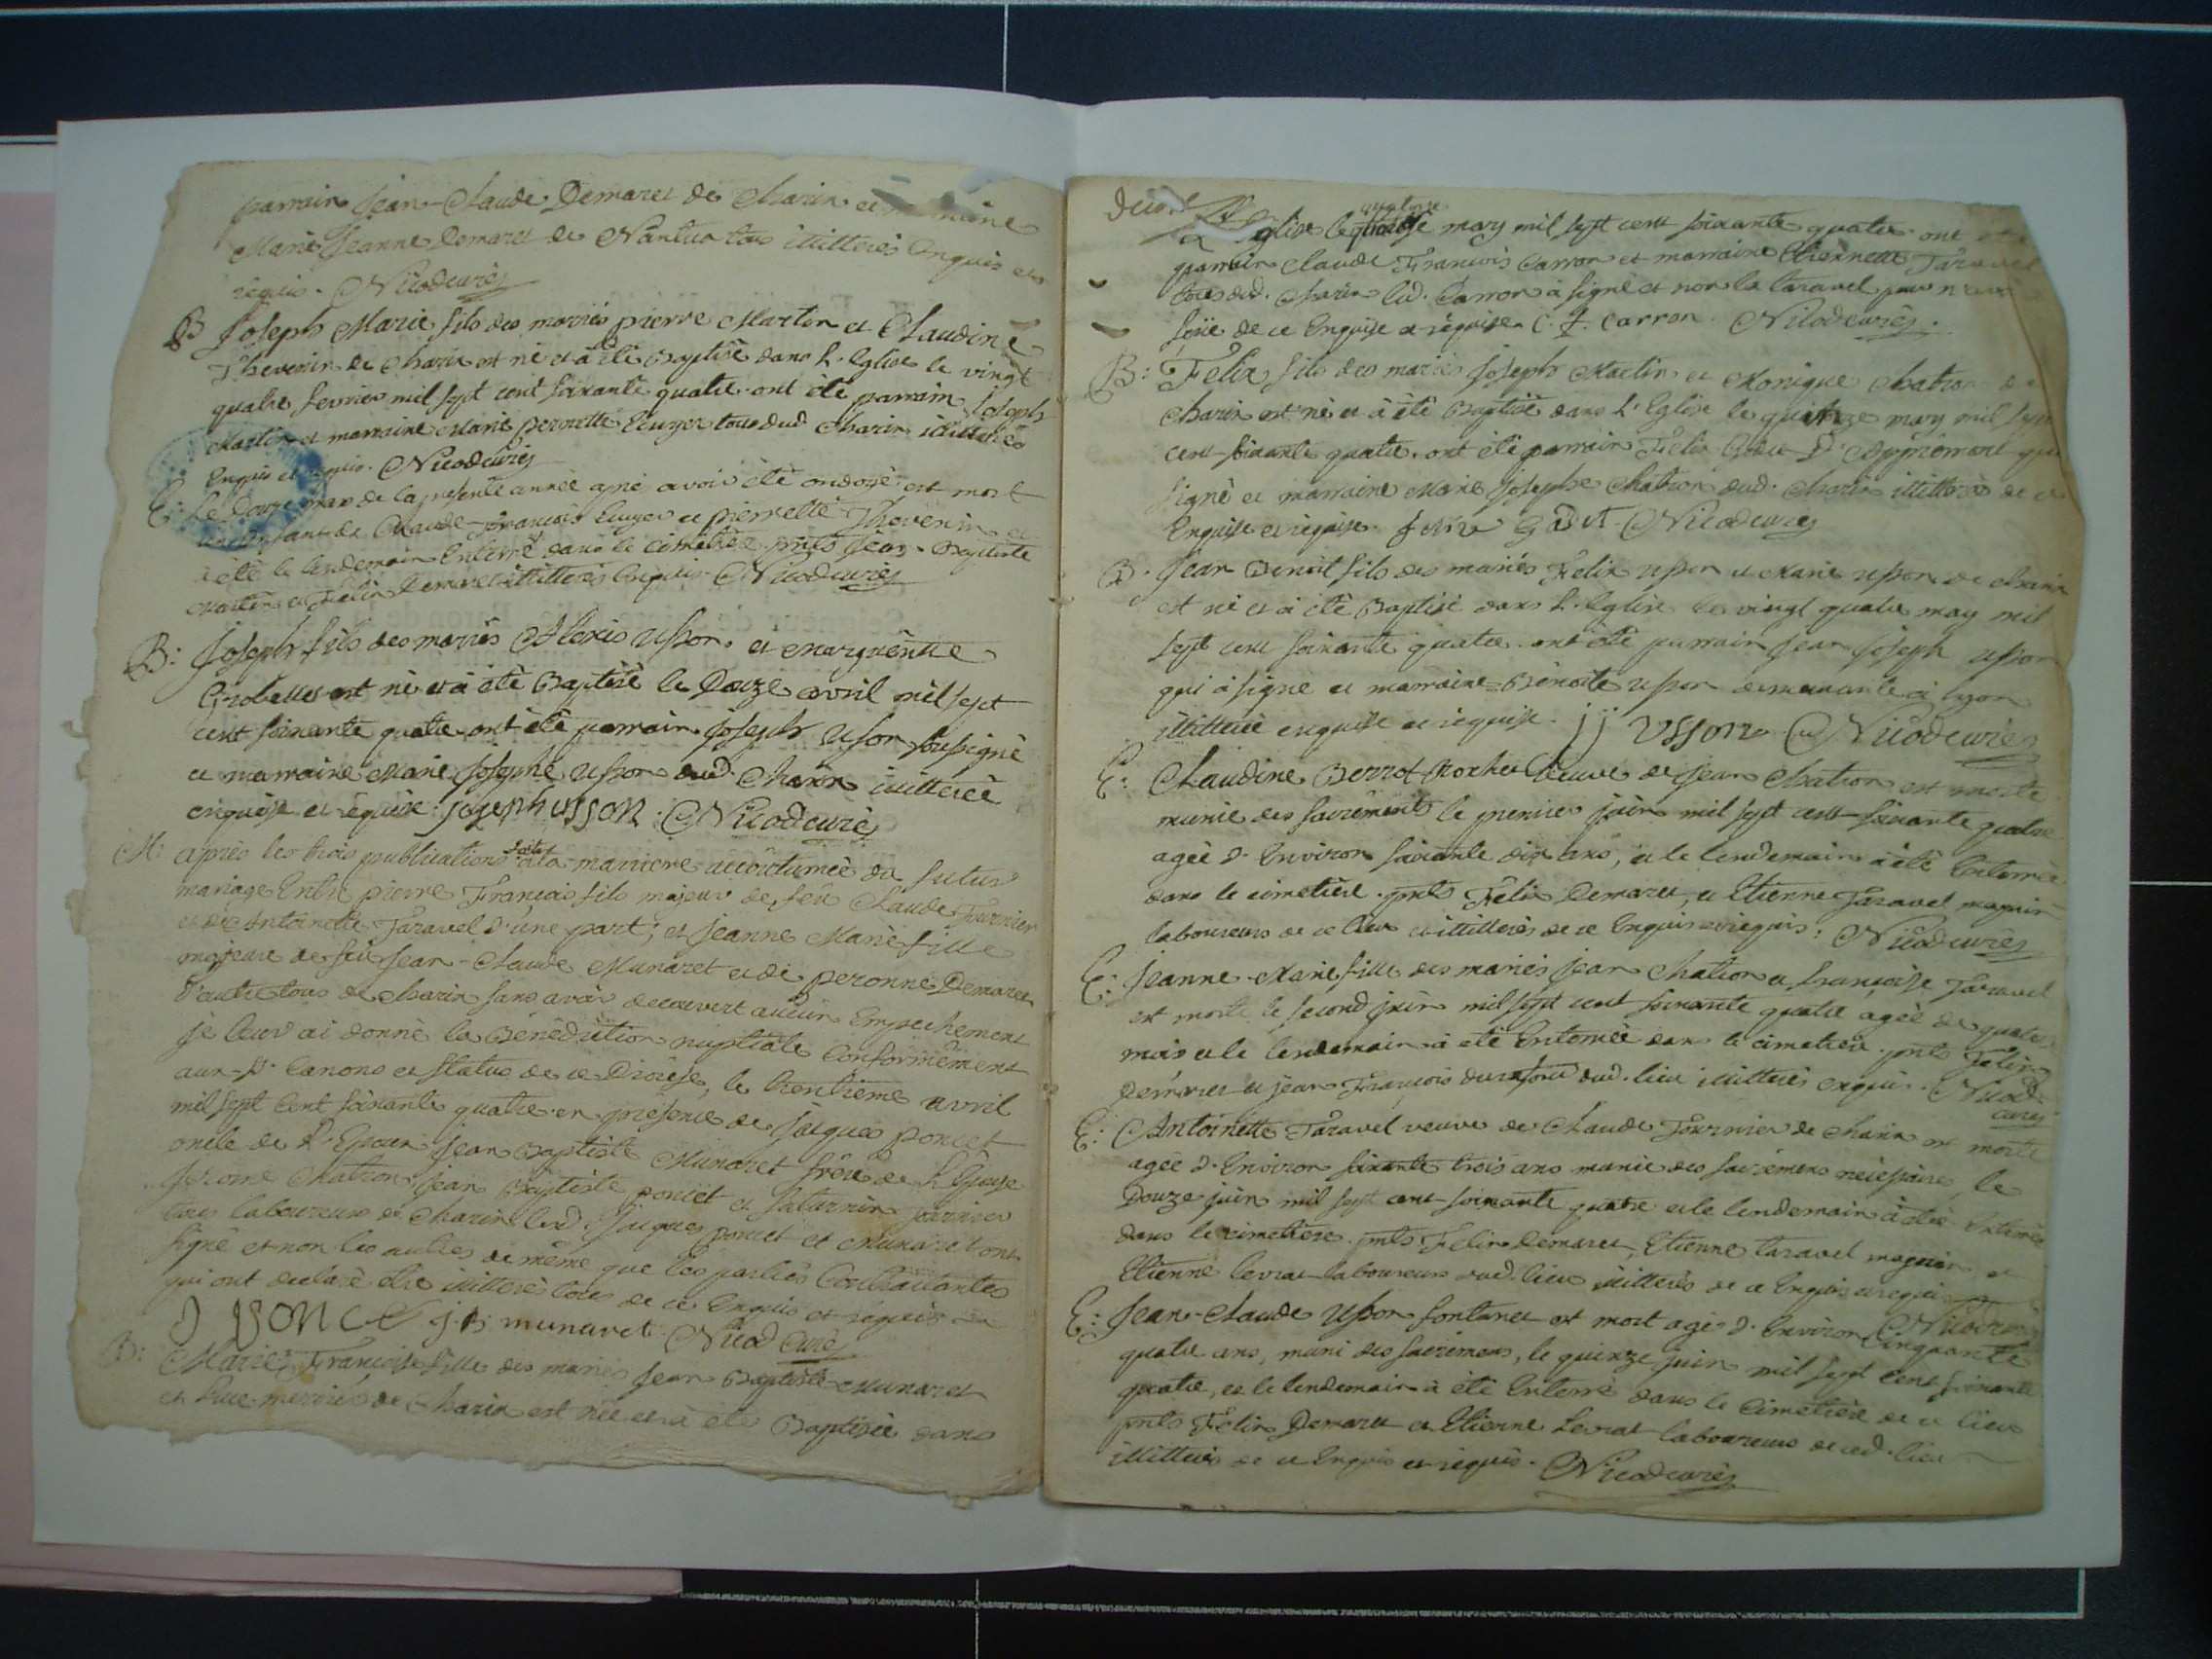 parrain Jean-Claude Demaret de Charix et
Marie Jeanne Demaret de Nantua tous illitterés Enquis et
requis. Nicod curé
B Joseph Marie fils des mariés pierre Martin et Claudine
Thevenin de Charix est né et à été Baptisé dans L'Eglise le vingt
quatre fevrier mil sept cent soixante quatre. ont été parrain Joseph
Martin et marraine Marie perrette Euyer tous dud. Charix illitterés
Enquis et requis. Nicod curé
E: Le Douze mars de la presente année aprè avoir été ondoyé est mort
enfant de Claude-françois Euyer et pierrette Thevenin et
à été le lendemain Enterré dans le cimetière prnts Jean-Baptiste
Martin et Felix Demaret illitterés Enquis. Nicod curé
B: Joseph fils des mariés Alexis Usson et marguerite
Grobellet est né et à été Baptisé le Douze avril mil sept
cent soixante quatre ont été parrain Joseph Usson soussigné
et marraine Marie Josephe Usson dud. Charix illitterée
enquise et requise. joseph usson. Nicod curé
M: après les trois publications faites à la manière accoutumée du futur
mariage Entre pierre François fils majeur de feu Claude Fournier
et de Antoinette Taravel d'une part; et Jeanne Marie fille
majeure de feu Jean-Claude Munaret et de peronne Demaret
d'autre tous de Charix sans avoir decouvert aucun Empechement
je leur ai donné la Bénédiction nuptiale Conformément
aux St. Canons et Statuts de ce Diocèse, le trentieme avril
mil sept Cent soixante quatre en présence de Jacques poncet
oncle de L'Epoux Jean Baptiste Munaret frère de L'Epouse
Jerome Chatron, Jean Baptiste poncet et Saturnin
tous laboureurs de Charix led. Jacques poncet et Munaret ont
signé et non les autres de même que les parties Contractantes
qui ont declaré être illitterés tous de ce Enquis et requis
J PONCET j.B. munaret. Nicod Curé
B: Marie Françoise fille des mariés Jean Baptiste Munaret
et de Charix est née et à été Baptisée dans
L'Eglise le may mil sept cent soixante quatre. ont été
parrain Claude François Carron et marraine Etiennette Taravel
tous dud. Charix led. Carron à signé et non la taravel pour
de ce Enquise et requise. C. F. Carron. Nicod curé
B: Felix fils des mariés Joseph Martin et Monique Chatron de
Charix est né et à été Baptisé dans L'Eglise le quinze may mil sept
cent soixante quatre. ont été parrain Felix qui
signé et marraine Marie Josephe Chatron dud. Charix illitterée de ce
Enquise et requise. Nicod curé
B. Jean Benoit fils des mariés Felix Usson et Marie Usson de Charix
est né et à été Baptisé dans L'Eglise le vingt quatre may mil
sept cent soixante quatre. ont été parrain Jean Joseph Usson
qui à signé et marraine Benoite Usson demeurante à Lyon
illitterée enquise et requise. jj usson Nicod curé
E: Claudine Berrot veuve de Jean Chatron est morte
munie des sacréments le premier juin mil sept cent soixante quatre
agée d'Environ soixante dix ans, et le lendemain à été Enterrée
dans le cimetière. prnts Felix Demaret, et Etienne Taravel
laboureurs de ce lieu et illitterés de ce Enquis et requis: Nicod curé
E: Jeanne-Marie fille des mariés Jean Chatron et françoise Taravel
est morte le second juin mil sept cent soixante quatre agée de quatre
mois et le lendemain à été Enterrée dans le cimetière. prnts Felix
Demaret et Jean François dud. lieu illitterés enquis. Nicod
curé
E: Antoinette Taravel veuve de Claude Fournier de Charix est morte
agée d'Environ soixante trois ans munie des sacrémens nécéssaires le
Douze juin mil sept cent soixante quatre et le lendemain à été Enterrée
dans le cimetière. prnts Felix Demaret, Etienne taravel et
Etienne Levrat laboureurs dud. lieu illitterés de ce Enquis et requis
Nicod curé
E: Jean-Claude Usson fontanet est mort agé d'Environ Cinquante
quatre ans, muni des sacrémens, le quinze juin mil sept cent soixante
quatre, et le lendemain à été Enterré dans le Cimetière de ce lieu
prnts Felix Demaret et Etienne Levrat laboureurs de ced. lieu
illitterés de ce Enquis et requis. Nicod curé